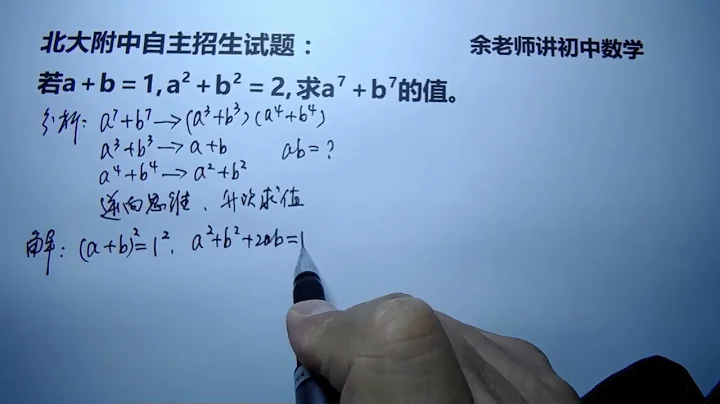 北大附中自主招生试题：
余老师讲初中数学
若a+b=1,a²+b²=2,求a⁷+b⁷的值。
分析：a⁷+b⁷→(a³+b³)(a⁴+b⁴)
a³+b³→a+b ab=?
a⁴+b⁴→a²+b²
逆向思维、升次求值
解：(a+b)²=1², a²+b²+2ab=1